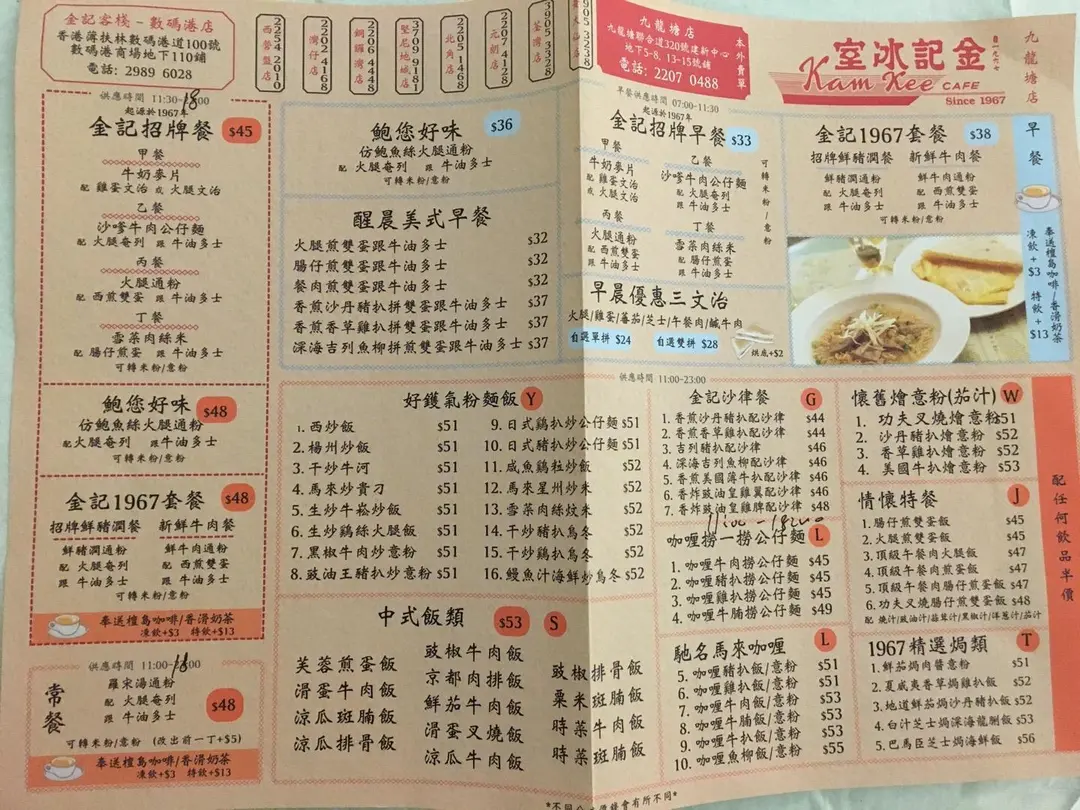 金記客棧 - 數碼港店
香港薄扶林數碼港道100號
數碼港商場地下110舖
電話: 2989 6028
西營盤店
2254 2010
灣仔店
2202 4168
銅鑼灣店
2206 4448
堅尼地城店
2709 9181
北角店
2205 1468
元朗店
2207 4128
荃灣店
3905 3328
3905 3238
九龍塘店
九龍塘聯合道320號建新中心
地下5-8, 13-15號鋪
電話: 2207 0488
本外賣單
金記冰室
自一九六七
Kam Kee CAFE
Since 1967
九龍塘店
供應時間 11:30-18:00
起源於1967年
金記招牌餐 $45
甲餐
牛奶麥片
配 雞蛋文治 或 火腿文治
乙餐
沙嗲牛肉公仔麵
配 火腿奄列 跟 牛油多士
丙餐
火腿通粉
配 西煎雙蛋 跟 牛油多士
丁餐
雪菜肉絲米
配 腸仔煎蛋 跟 牛油多士
可轉米粉/意粉
鮑您好味 $48
仿鮑魚絲火腿通粉
配 火腿奄列 跟 牛油多士
可轉米粉/意粉
金記1967套餐 $48
招牌鮮豬潤餐 新鮮牛肉餐
鮮豬潤通粉 鮮牛肉通粉
配 火腿奄列 配 西煎雙蛋
跟 牛油多士 跟 牛油多士
可轉米粉/意粉
奉送檀島咖啡/香滑奶茶
凍飲+$3 特飲+$13
供應時間 11:00-18:00
常餐
羅宋湯通粉
配 火腿奄列
跟 牛油多士
$48
可轉米粉/意粉 (改出前一丁+$5)
奉送檀島咖啡/香滑奶茶
凍飲+$3 特飲+$13
鮑您好味 $36
仿鮑魚絲火腿通粉
配 火腿奄列 跟 牛油多士
可轉米粉/意粉
醒晨美式早餐
火腿煎雙蛋跟牛油多士 $32
腸仔煎雙蛋跟牛油多士 $32
餐肉煎雙蛋跟牛油多士 $32
香煎沙丹豬扒拼雙蛋跟牛油多士 $37
香煎香草雞扒拼雙蛋跟牛油多士 $37
深海吉列魚柳拼煎雙蛋跟牛油多士 $37
早餐供應時間 07:00-11:30
起源於1967年
金記招牌早餐 $33
甲餐
牛奶麥片
配 雞蛋文治
或 火腿文治
乙餐
沙嗲牛肉公仔麵
配 火腿奄列
跟 牛油多士
丙餐
火腿通粉
配 西煎雙蛋
跟 牛油多士
丁餐
雪菜肉絲米
配 腸仔煎蛋
跟 牛油多士
可轉米粉/意粉
早晨優惠三文治
火腿/雞蛋/蕃茄/芝士/午餐肉/鹹牛肉
自選單拼 $24 自選雙拼 $28
烘底+$2
金記1967套餐 $38
招牌鮮豬潤餐 新鮮牛肉餐
鮮豬潤通粉 鮮牛肉通粉
配 火腿奄列 配 西煎雙蛋
跟 牛油多士 跟 牛油多士
可轉米粉/意粉
早餐
奉送檀島咖啡/香滑奶茶
凍飲+$3 特飲+$13
供應時間 11:00-23:00
好鑊氣粉麵飯 Y
1. 西炒飯 $51
2. 楊州炒飯 $51
3. 干炒牛河 $51
4. 馬來炒貴刁 $51
5. 生炒牛崧炒飯 $51
6. 生炒鷄絲火腿飯 $51
7. 黑椒牛肉炒意粉 $51
8. 豉油王豬扒炒意粉 $51
9. 日式鷄扒炒公仔麵 $51
10. 日式豬扒炒公仔麵 $51
11. 咸魚鷄粒炒飯 $52
12. 馬來星州炒米 $52
13. 雪菜肉絲炆米 $52
14. 干炒豬扒烏冬 $52
15. 干炒鷄扒烏冬 $52
16. 鰻魚汁海鮮炒烏冬 $52
中式飯類 $53 S
芙蓉煎蛋飯
滑蛋牛肉飯
涼瓜斑腩飯
涼瓜排骨飯
豉椒牛肉飯
京都肉排飯
鮮茄牛肉飯
滑蛋叉燒飯
涼瓜牛肉飯
豉椒排骨飯
粟米斑腩飯
時菜牛肉飯
時菜斑腩飯
金記沙律餐 G
1. 香煎沙丹豬扒配沙律 $44
2. 香煎香草雞扒配沙律 $44
3. 吉列豬扒配沙律 $46
4. 深海吉列魚柳配沙律 $46
5. 香煎美國薄牛扒配沙律 $46
6. 香炸豉油皇雞翼配沙律 $46
7. 香炸豉油皇雞脾配沙律 $48
咖喱撈一撈公仔麵 L
1. 咖喱牛肉撈公仔麵 $45
2. 咖喱豬扒撈公仔麵 $45
3. 咖喱雞扒撈公仔麵 $45
4. 咖喱牛腩撈公仔麵 $49
馳名馬來咖喱 L
5. 咖喱豬扒飯/意粉 $51
6. 咖喱雞扒飯/意粉 $51
7. 咖喱牛肉飯/意粉 $53
8. 咖喱牛腩飯/意粉 $53
9. 咖喱牛扒飯/意粉 $53
10. 咖喱魚柳飯/意粉 $55
懷舊燴意粉(茄汁) W
1. 功夫叉燒燴意粉 $51
2. 沙丹豬扒燴意粉 $52
3. 香草雞扒燴意粉 $52
4. 美國牛扒燴意粉 $53
情懷特餐 J
1. 腸仔煎雙蛋飯 $45
2. 火腿煎雙蛋飯 $45
3. 頂級午餐肉火腿飯 $47
4. 頂級午餐肉煎雙蛋飯 $47
5. 頂級午餐肉腸仔煎雙蛋飯 $47
6. 功夫叉燒腸仔煎雙蛋飯 $48
配 燒汁/豉油汁/菇茸汁/黑椒汁/洋葱汁/茄汁
1967精選焗類 T
1. 鮮茄焗肉醬意粉 $51
2. 夏威夷香草焗雞扒飯 $52
3. 地道鮮茄焗沙丹豬扒飯 $52
4. 白汁芝士焗深海龍脷飯 $53
5. 巴馬臣芝士焗海鮮飯 $56
配任何飲品半價